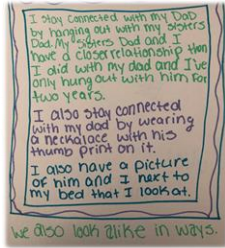 I stay connected with my DaD
by hanging out with my sisters
Dad. My sisters Dad and I
have a closer relationship than
I did with my dad and I've
only hung out with him for
two years.
I also stay connected
with my dad by wearing
a neckalace with his
thumb print on it.
I also have a picture
of him and I next to
my bed that I look at.
we also look alike in ways.